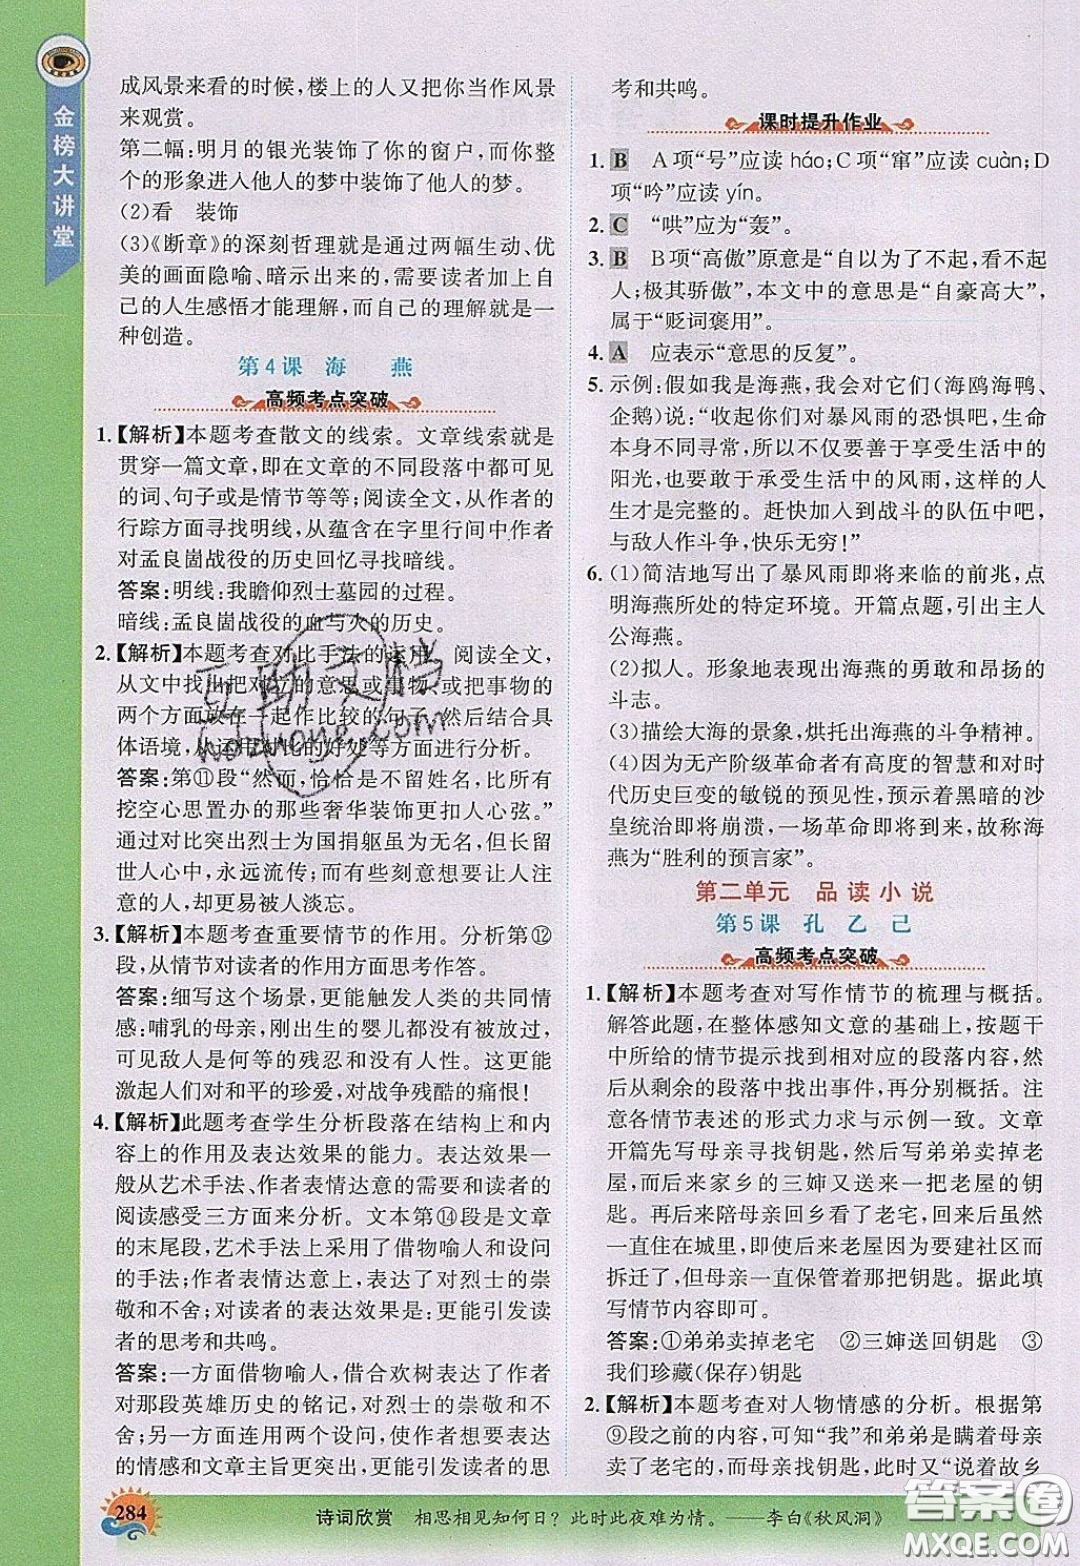 金榜大讲堂
成风景来看的时候,楼上的人又把你当作风景
来观赏。
第二幅:明月的银光装饰了你的窗户,而你整
个的形象进入他人的梦中装饰了他人的梦。
(2)看　装饰
(3)《断章》的深刻哲理就是通过两幅生动、优
美的画面隐喻、暗示出来的,需要读者加上自
己的人生感悟才能理解,而自己的理解就是一
种创造。
第4课　海　燕
高频考点突破
1.【解析】本题考查散文的线索。文章线索就是
贯穿一篇文章,即在文章的不同段落中都可见
的词、句子或是情节等等;阅读全文,从作者的
行踪方面寻找明线,从蕴含在字里行间中作者
对孟良崮战役的历史回忆寻找暗线。
答案:明线:我瞻仰烈士墓园的过程。
暗线:孟良崮战役的血与火的历史。
2.【解析】本题考查对比手法的运用。阅读全文,
从文中找出把对立的意思或事物、或把事物的
两个方面放在一起作比较的句子,然后结合具
体语境,从运用对比的好处等方面进行分析。
答案:第⑪段“然而,恰恰是不留姓名,比所有
挖空心思置办的那些奢华装饰更扣人心弦。”
通过对比突出烈士为国捐躯虽为无名,但长留
世人心中,永远流传;而有些刻意想要让人注
意的,却更易被人淡忘。
3.【解析】本题考查重要情节的作用。分析第⑫
段,从情节对读者的作用方面思考作答。
答案:细写这个场景,更能触发人类的共同情
感:哺乳的母亲,刚出生的婴儿都没有被放过,
可见敌人是何等的残忍和没有人性。这更能
激起人们对和平的珍爱,对战争残酷的痛恨!
4.【解析】此题考查学生分析段落在结构上和内
容上的作用及表达效果的能力。表达效果一
般从艺术手法、作者表情达意的需要和读者的
阅读感受三方面来分析。文本第⑭段是文章
的末尾段,艺术手法上采用了借物喻人和设问
的手法;作者表情达意上,表达了对烈士的崇
敬和不舍;对读者的表达效果是:更能引发读
者的思考和共鸣。
答案:一方面借物喻人,借合欢树表达了作者
对那段英雄历史的铭记,对烈士的崇敬和不
舍;另一方面两个设问,使作者所想要表达
的情感和文章主旨更突出,更能引发读者的思
考和共鸣。
课时提升作业
1. B　A项“号”应读háo;C项“窜”应读cuàn;D
项“吟”应读yín。
2. C　“哄”应为“轰”。
3. B　B项“高傲”原意是“自以为了不起,看不起
人;极其骄傲”,本文中的意思是“自豪高大”,
属于“贬词褒用”。
4. A　应表示“意思的反复”。
5. 示例:假如我是海燕,我会对它们(海鸥海鸭、
企鹅)说:“收起你们对暴风雨的恐惧吧,生命
本身不同寻常,所以不仅仅要善于享受生活中的
阳光,也要善于享受生活中的风雨,这样的人
生才是完整的。赶快加入到战斗的队伍中吧,
与敌人作斗争,快乐无穷!”
6. (1)简洁地写出了暴风雨即将来临的前兆,点
明海燕所处的特定环境。开篇点题,引出主人
公海燕。
(2)拟人。形象地表现出海燕的勇敢和昂扬的
斗志。
(3)描绘大海的景象,烘托出海燕的斗争精神。
(4)因为无产阶级革命者有高度的智慧和对时
代历史巨变的敏锐的预见性,预示着黑暗的沙
皇统治即将崩溃,一场革命即将到来,故称海
燕为“胜利的预言家”。
第二单元　品读小说
第5课　孔乙己
高频考点突破
1.【解析】本题考查对写作情节的梳理与概括。
解答此题,在整体感知文意的基础上,按题干
中所给的情节提示找到相对应的段落内容,然
后从剩余的段落中找出事件,再分别概括。注
意各情节表述的形式力求与示例一致。文章
开篇先写母亲寻找钥匙,然后写弟弟卖掉老
屋,后来家乡的三婶又送来一把老屋的钥
匙。再后来陪母亲回乡看了老宅,回来后虽然
一直住在城里,即使后来老屋因为要建社区而
拆迁了,但母亲一直保管着那把钥匙。据此填
写情节内容即可。
答案:①弟弟卖掉老宅　②三婶送回钥匙　③
我们珍藏(保存)钥匙
2.【解析】本题考查对人物情感的分析。根据第
⑨段之前的内容,可知“我”和弟弟是瞒着母亲
卖了老屋的,而且没有卖给三婶,而又“说着故乡
284
诗词欣赏　相思相见知何日?此时此夜难为情。——李白《秋风词》
互助文档
hdzuoye.com
答案圈
MXQE.COM